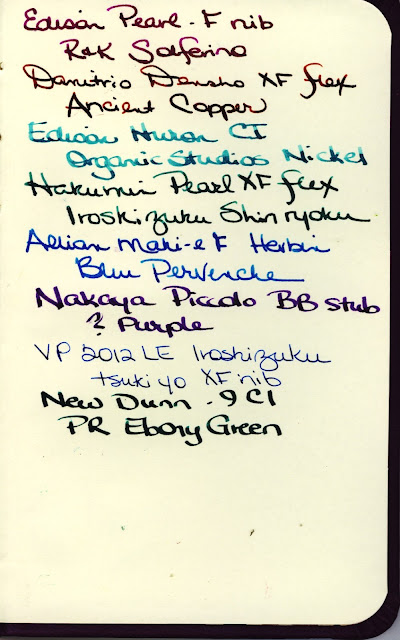 Edison Pearl - F nib
R&K Solferino
Danitrio Densho XF flex
Ancient Copper
Edison Huron CI
Organic Studios Nickel
Hakumin Pearl XF flex
Iroshizuku Shin ryoku
Maki-e F Herbin
Bleu Pervenche
Nakaya Piccolo BB stub
? Purple
VP 2012 LE Iroshizuku
tsukiyo XF nib
New Dunn - 9 CI
PR Ebony Green